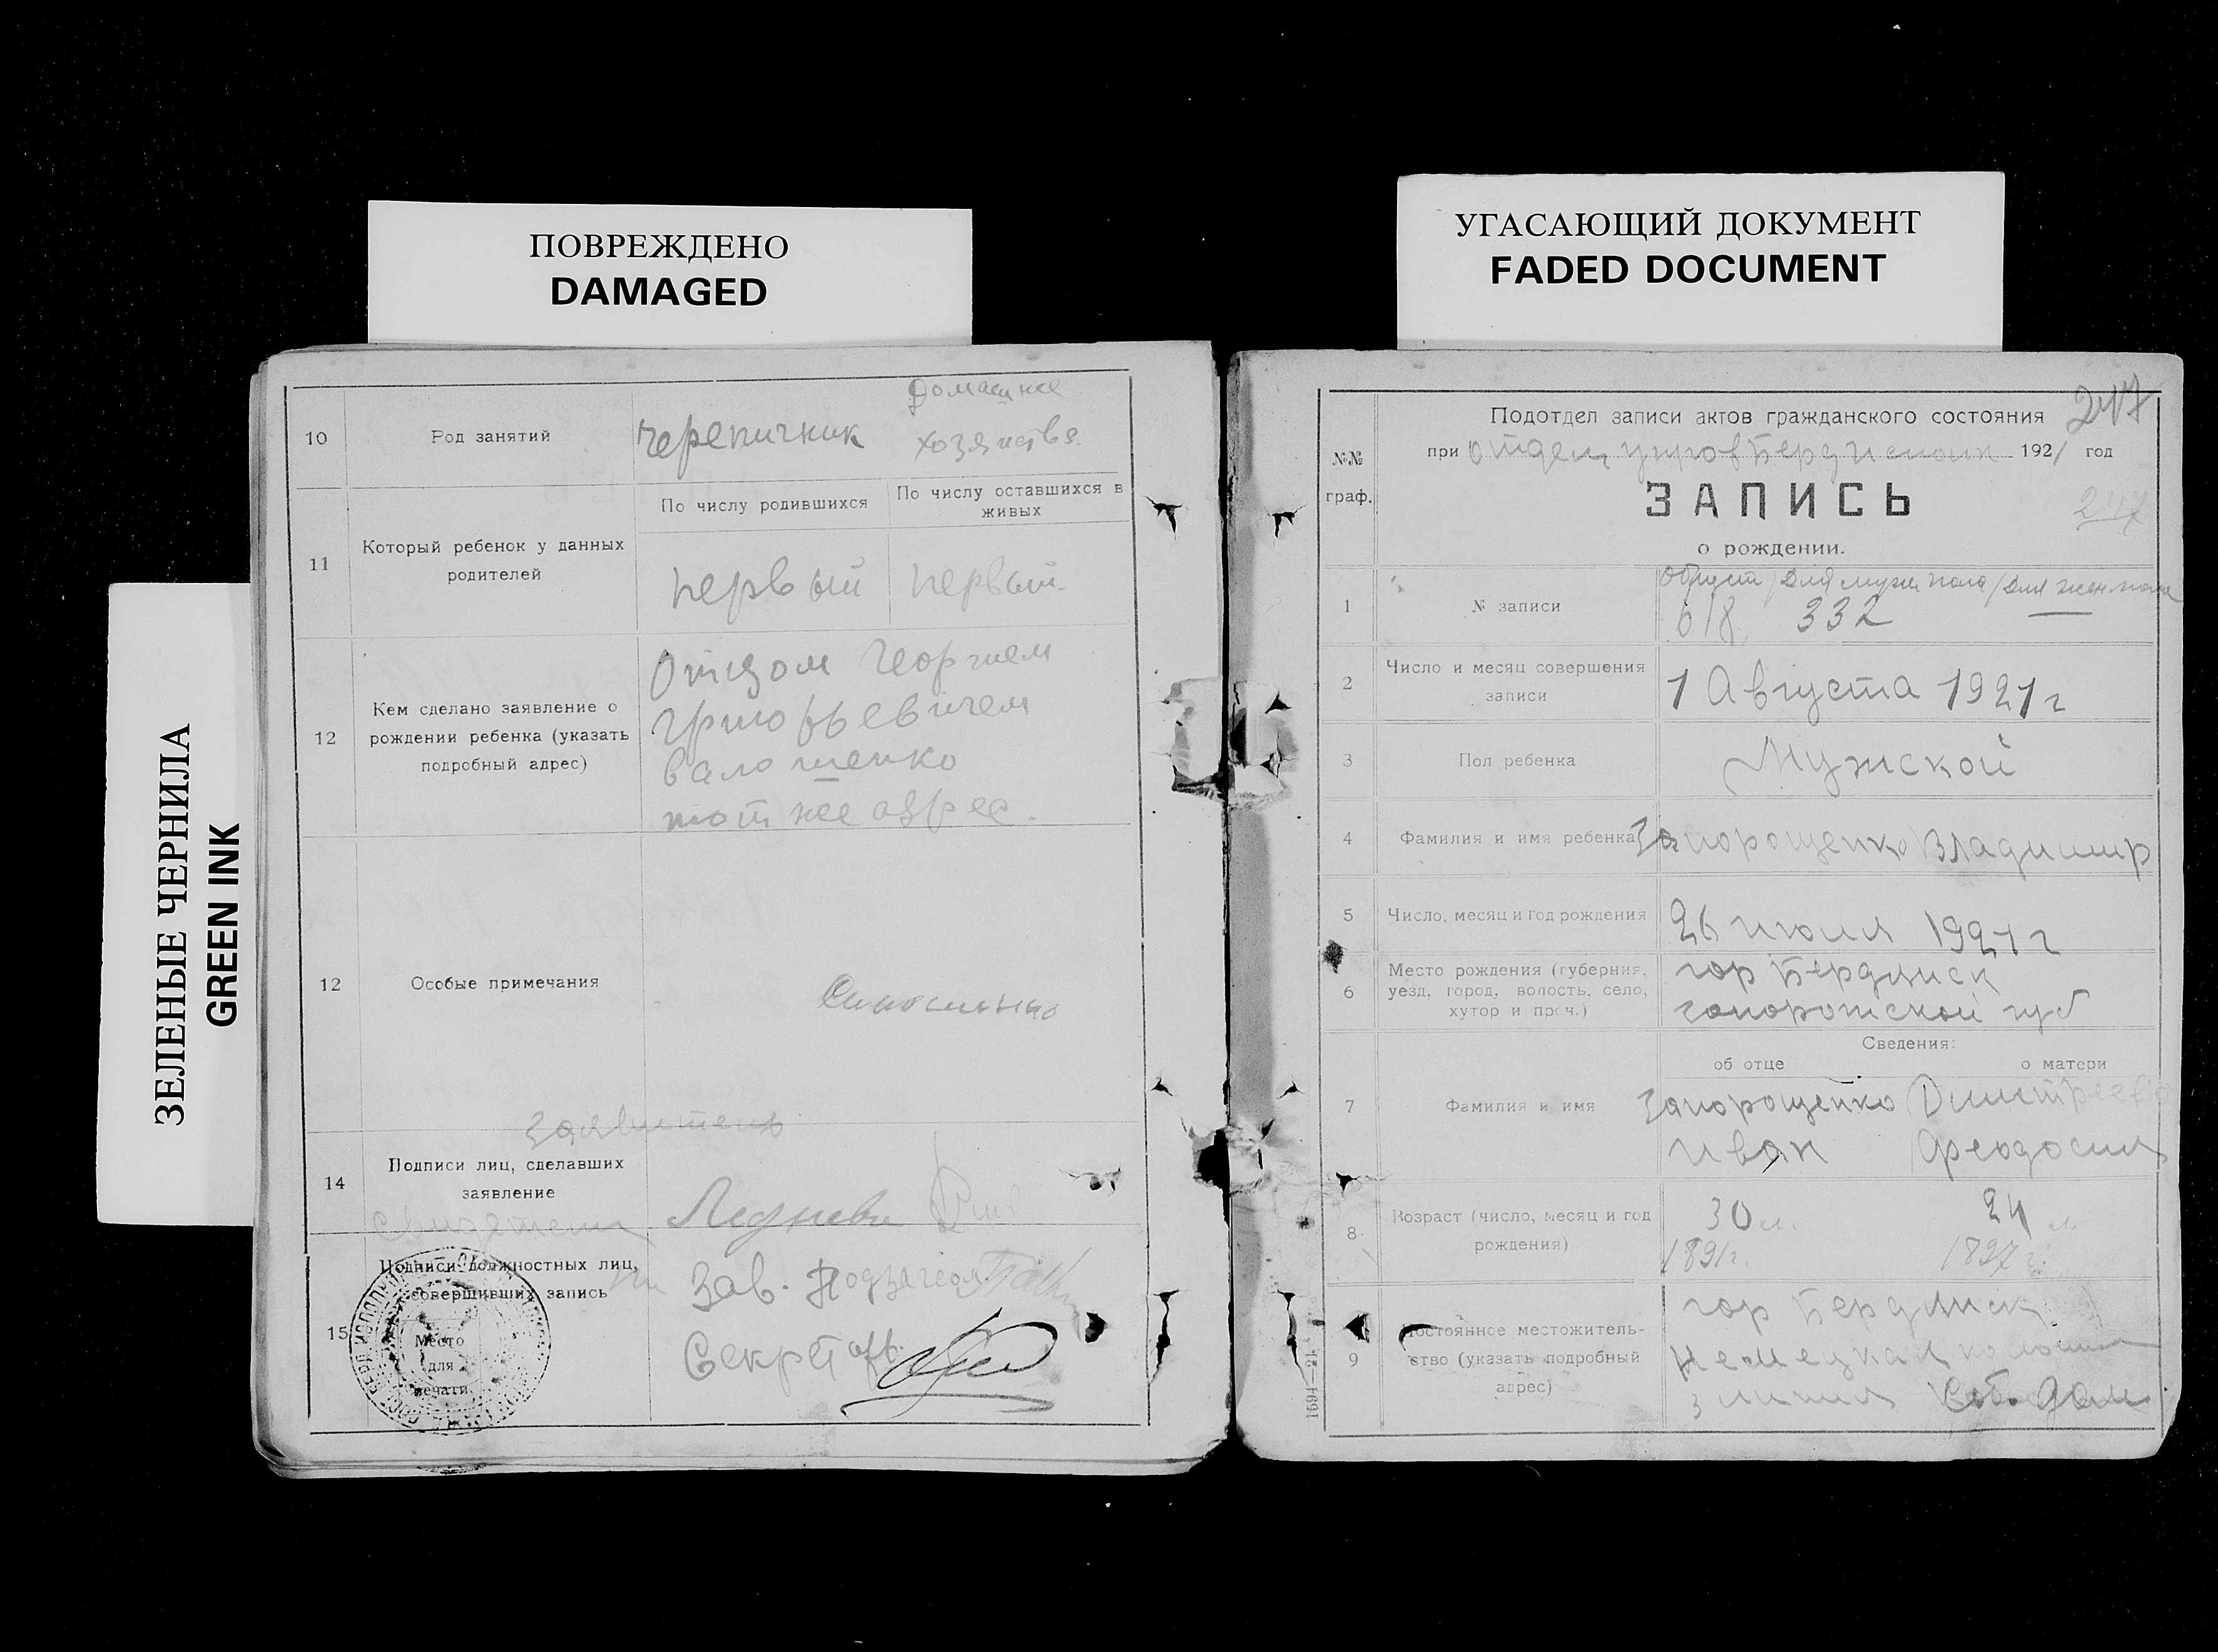 ПОВРЕЖДЕНО
DAMAGED
УГАСАЮЩИЙ ДОКУМЕНТ
FADED DOCUMENT
ЗЕЛЕНЫЕ ЧЕРНИЛА
GREEN INK
10
Род занятий
черепичник
домашнее
хозяйство
11
Который ребенок у данных
родителей
По числу родившихся
По числу оставшихся в
живых
первый
первый
12
Кем сделано заявление о
рождении ребенка (указать
подробный адрес)
Отцом Георгием
вало шенко
тот же адрес.
12
Особые примечания
заявитель
14
Подписи лиц, сделавших
заявление
15
Подписи должностных лиц,
совершивших запись
Место
для
печати
Зав. Подзагсом
Секрет
247
Подотдел записи актов гражданского состояния
№№
граф.
при отдел управ Бердянском 1921 год
ЗАПИСЬ
247
о рождении.
1
№ записи
для муж пола / для жен пола
618 332 —
2
Число и месяц совершения
записи
1 Августа 1921 г
3
Пол ребенка
Мужской
4
Фамилия и имя ребенка
Запорощенко Владимир
5
Число, месяц и год рождения
26 июля 1921 г
6
Место рождения (губерния,
уезд, город, волость, село,
хутор и проч.)
гор Бердянск
запорожской губ
Сведения:
об отце
о матери
7
Фамилия и имя
Запорощенко
Иван
Феодосия
8
Возраст (число, месяц и год
рождения)
30 л.
1891 г.
24 л.
1897 г.
9
Постоянное местожитель-
ство (указать подробный
адрес)
гор Бердянск
Немецкая колония
3 линия Соб. дом
1594—21